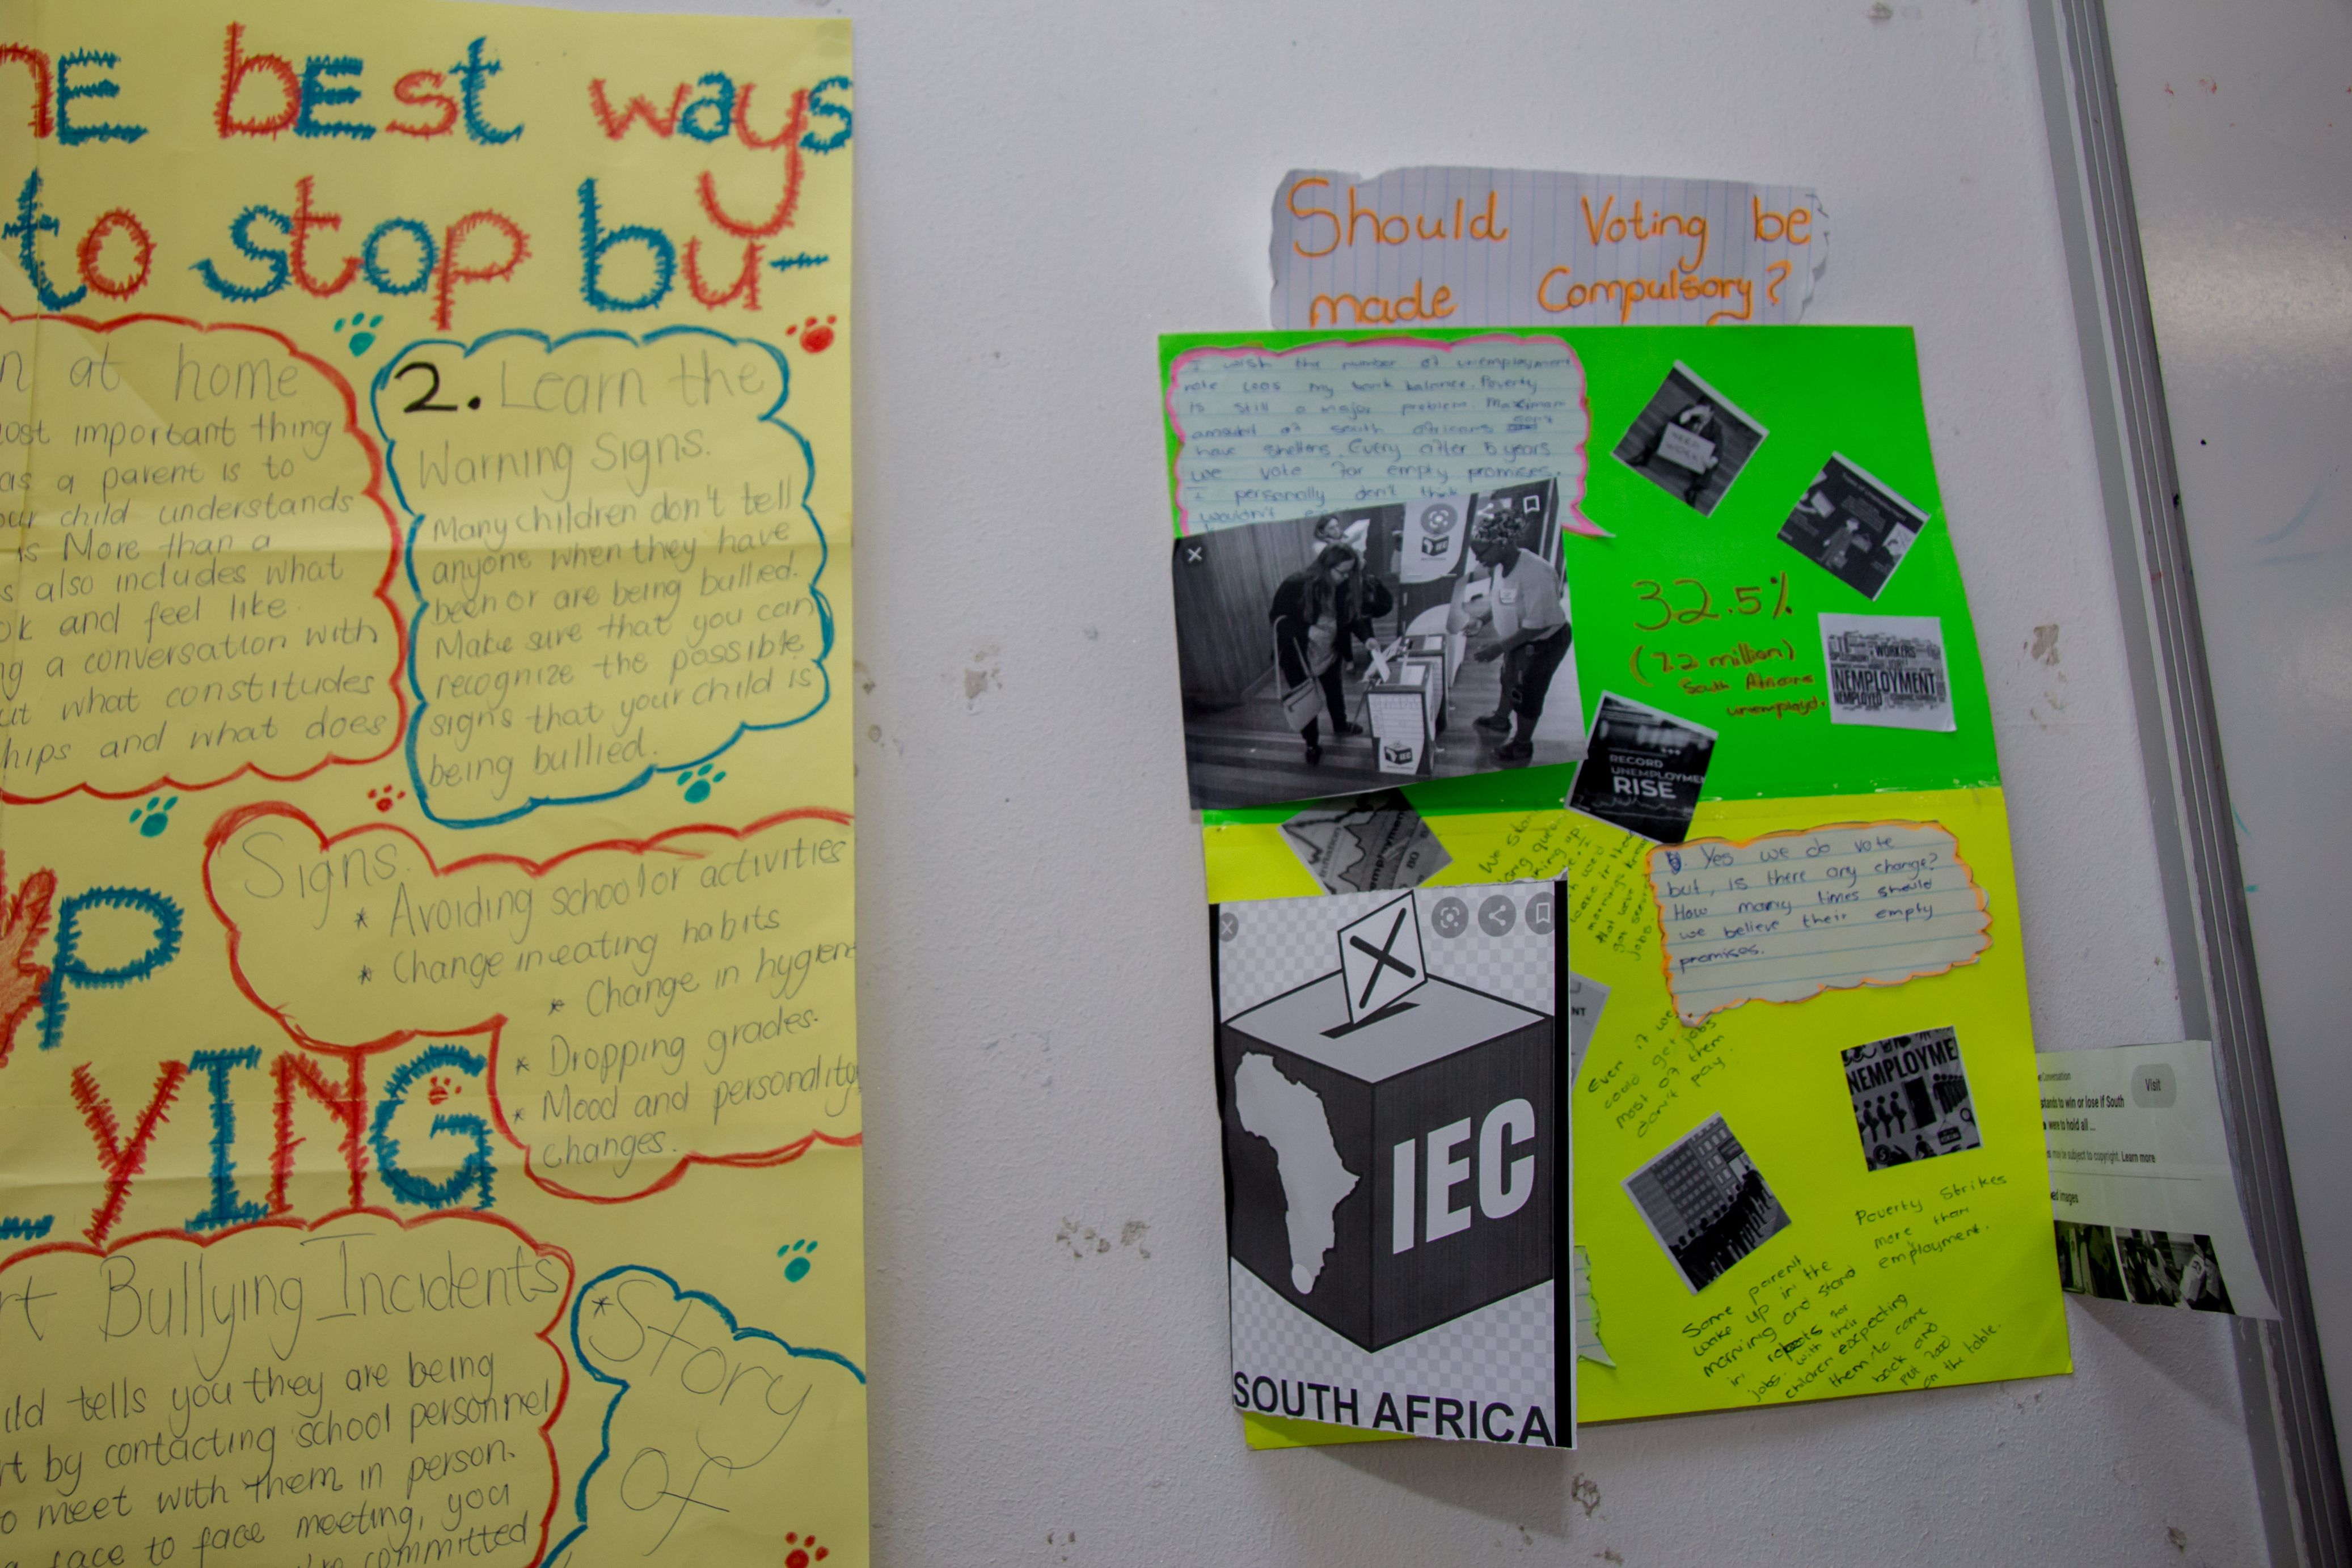 nE bEst ways
to stop bu-
n at home
ost important thing
as a parent is to
our child understands
is More than a
s also includes what
ok and feel like
ng a conversation with
ut what constitudes
hips and what does
2. Learn the
Warning Signs.
Many children don't tell
anyone when they have
been or are being bullied.
Make sure that you can
recognize the possible
signs that your child is
being bullied.
Signs.
* Avoiding school or activities
* Change in eating habits
* Change in hygien
* Dropping grades.
* Mood and personality
changes.
P
LYING
rt Bullying Incidents
ild tells you they are being
rt by contacting school personnel
o meet with them in person.
a face to face meeting, you
committed
*Story
of
Should Voting be
made Compulsory?
I wish the number of unemployment
rate was my bank balance. Poverty
is still a major problem. Maximum
amount of south africans
have shelters. Every after 5 years
we vote for empty promises.
I personally don't think
wouldn't
NEED
WORK
32.5%
(7.2 million)
South Africans
unemployd.
WORKERS
NEMPLOYMENT
RECORD
UNEMPLOYMEN
RISE
IEC
IEC
Yes we do vote
but, is there any change?
How many times should
we believe their empty
promises.
Even if we
could get jobs
most of them
don't pay.
NEMPLOYME
IEC
SOUTH AFRICA
Poverty Strikes
more than
employment.
Some parent
wake up in the
morning and stand
in robots for
jobs. with their
children expecting
them to come
back and
put food
on the table.
Visit
stands to win or lose if South
were to hold all ...
may be subject to copyright. Learn more
ed images